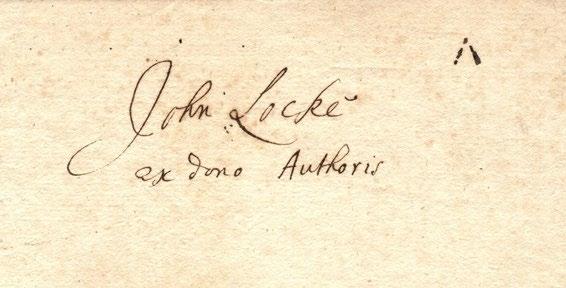 John Locke
ex dono Authoris